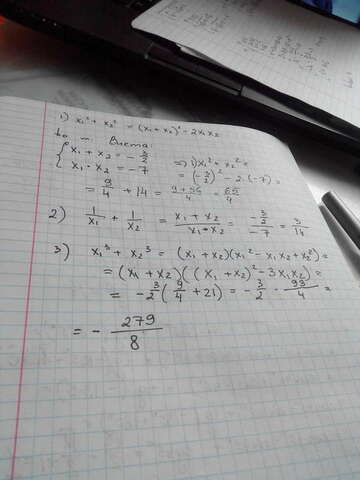 1) x₁² + x₂² = (x₁ + x₂)² - 2x₁x₂
по т. Виета:
{ x₁ + x₂ = - 3/2
{ x₁ · x₂ = - 7
=> 1) x₁² + x₂² =
= (- 3/2)² - 2 · (-7) =
= 9/4 + 14 = (9 + 56)/4 = 65/4
2) 1/x₁ + 1/x₂ = (x₁ + x₂)/(x₁ · x₂) = (- 3/2)/(-7) = 3/14
3) x₁³ + x₂³ = (x₁ + x₂)(x₁² - x₁x₂ + x₂²) =
= (x₁ + x₂)((x₁ + x₂)² - 3x₁x₂) =
= - 3/2 (9/4 + 21) = - 3/2 · 93/4 =
= - 279/8